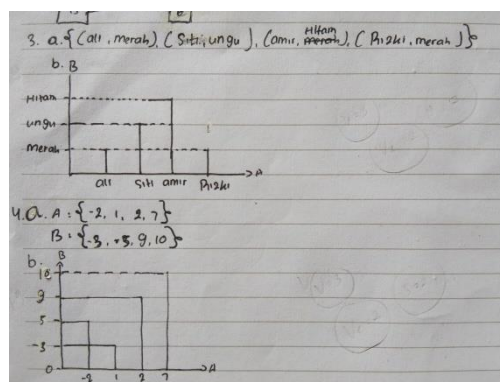 3. a. {(ali, merah), (Siti, ungu), (amir, Hitam), (Rizki, merah)}
b. B
Hitam
ungu
merah
ali siti amir Rizki A
4. a. A = {-2, 1, 2, 7}
B = {-3, -5, 9, 10}
b. B
10
9
5
-3
0
-2 1 2 7 A